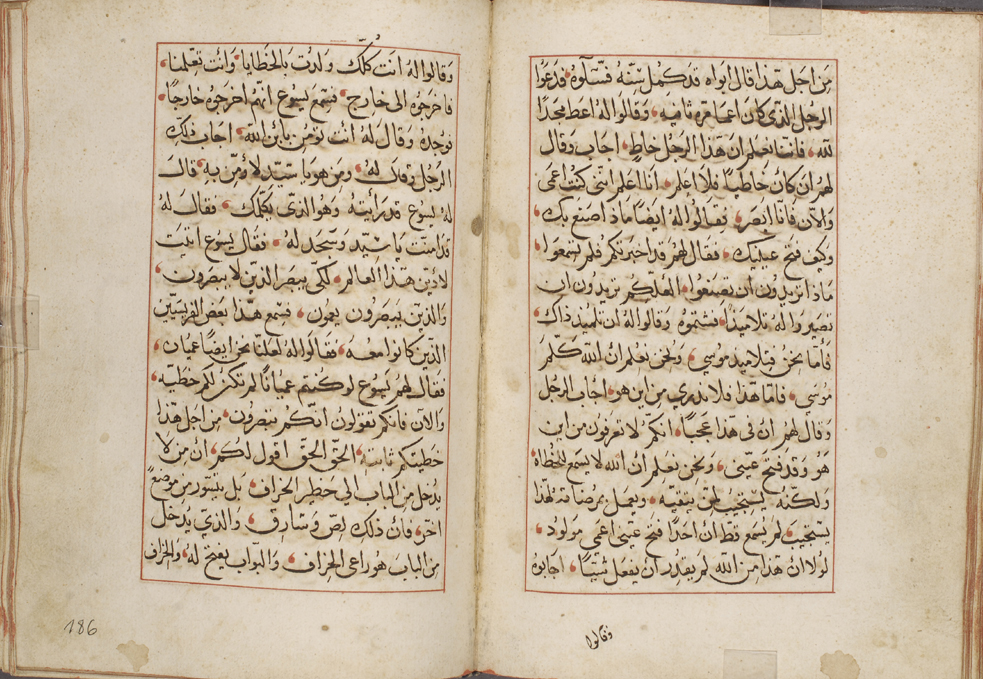 من اجل هذا قال ابواه قد كمل سنه فسئلوه فدعوا
الرجل الذي كان اعما مره ثانيه وقالوا له اعط مجدا
لله فاننا نعلم ان هذا الرجل خاط اجاب وقال
لهم ان كان خاطيا فلا اعلم انا اعلم انني كنت اعمى
والان فانا ابصر فقالوا له ايضا ماذا صنع بك
وكيف فتح عينيك فقال لهم قد اخبرتكم فلم تسمعوا
ماذا تريدون ان تصنعوا العلكم تريدون ان
تصيروا له تلاميذا فشتموه وقالوا له ان تلميذ ذاك
فأما نحن فتلاميذ موسي ونحن نعلم ان الله كلم
موسي فاما هذا فلا ندري من اين هو اجاب الرجل
وقال لهم ان في هذا عجبا انكم لا تعرفون من اين
هو وقد فتح عيني ونحن نعلم ان الله لا يسمع للخطاه
ولكنه يستجيب لمن يتقيه ويعمل مرضاته لهذا
يستجيب لم يسمع قط ان احدا فتح عيني اعمى مولود
لولا ان هذا من الله لم يقدر ان يفعل شيئا اجابوه
وقالوا
وقالوا له انت كلك ولدت بالخطايا وانت تعلمنا
فاخرجوه الى خارج فسمع يسوع انهم اخرجوه خارجا
فوجده وقال له انت تومن بابن الله اجاب ذلك
الرجل وقال له ومن هو يا سيد لاؤمن به قال
له يسوع قد رأيته وهو الذي يكلمك فقال له
قد امنت يا سيد وسجد له فقال يسوع اتيت
لادين هذا العالم لكي يبصر الذين لا يبصرون
والذين يبصرون يعمون فسمع هذا بعض الفريسيين
الذين كانوا معه فقالوا له لعلنا نحن ايضا عميان
فقال لهم يسوع لو كنتم عميانا لم تكن لكم خطيه
والان فانكم تقولون انكم تبصرون من اجل هذا
خطيتكم ثابتة الحق الحق اقول لكم ان من لا
يدخل من الباب الي حظير الخراف بل يتسور من موضع
اخر فان ذلك لص وسارق والذي يدخل
من الباب هو راعي الخراف والبواب يفتح له والخراف
186